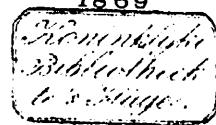 1869
Koninklijke
Bibliotheek
te 's Hage.